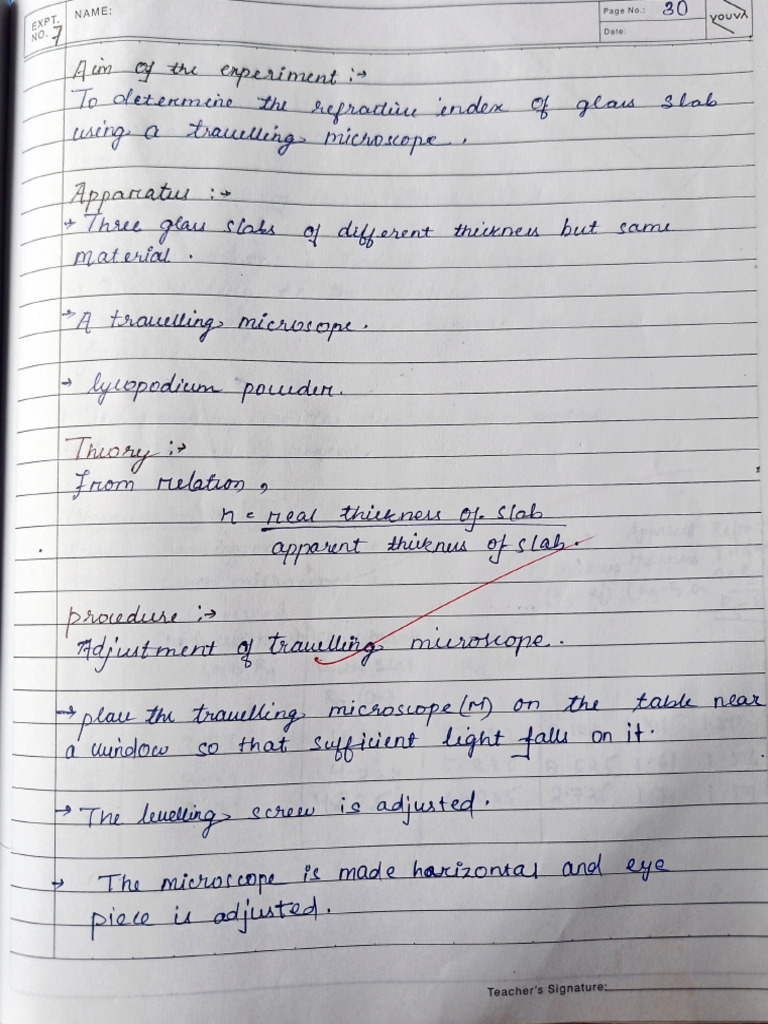 EXPT. NO. 7
NAME:
Page No.: 30
Date:
youva
Aim of the experiment :→
To determine the refractive index of glass slab
using a travelling microscope.
Apparatus :→
→ Three glass slabs of different thickness but same
material.
→ A travelling microscope.
→ lycopodium powder.
Theory :→
from relation,
n = real thickness of slab
apparent thickness of slab.
procedure :→
Adjustment of travelling microscope.
→ place the travelling microscope (M) on the table near
a window so that sufficient light falls on it.
→ The levelling screw is adjusted.
→ The microscope is made horizontal and eye
piece is adjusted.
Teacher's Signature: